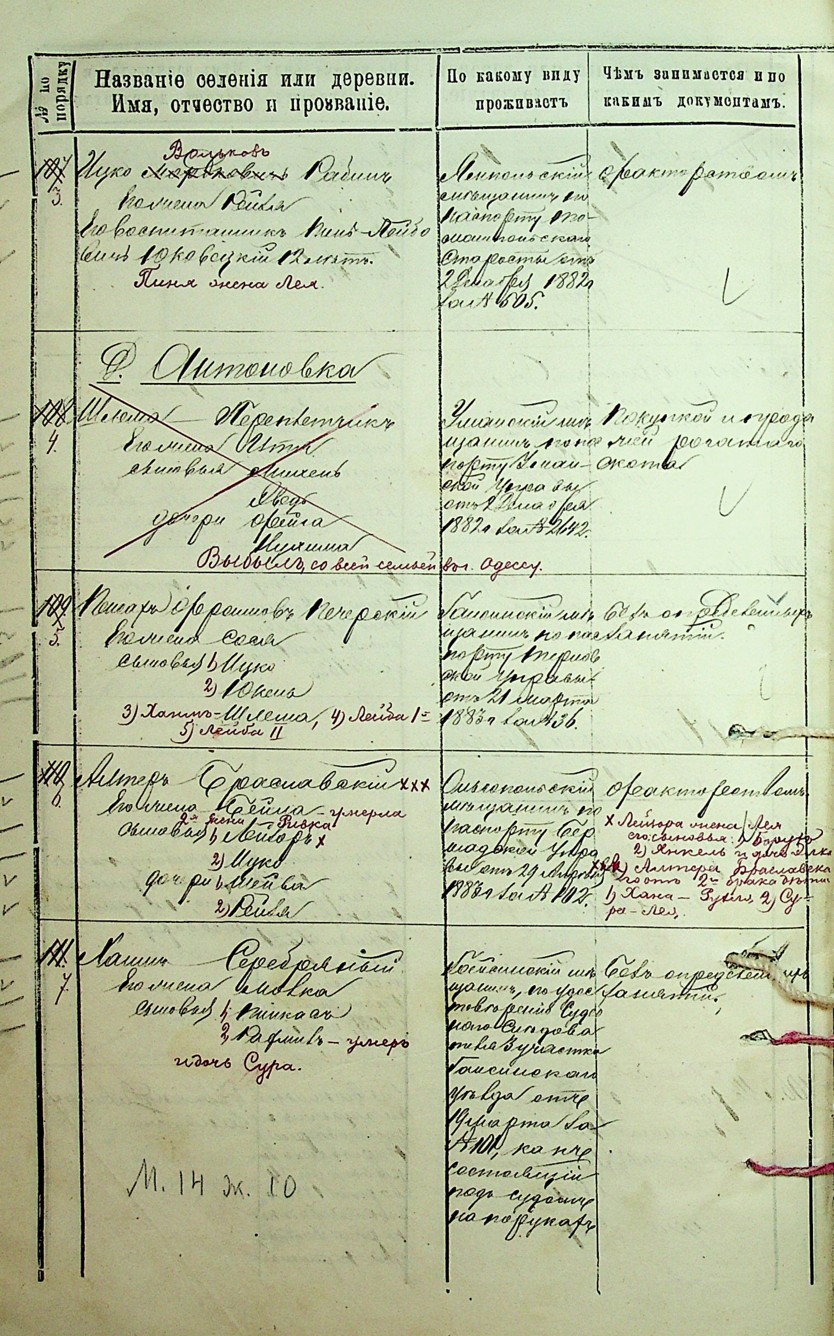 № по порядку
Названіе селенія или деревни.
Имя, отчество и прозваніе.
По какому виду
проживаетъ
Чѣмъ занимается и по
какимъ документамъ.
Вольковъ
107
3.
Ицко Рабинъ
Его жена Рейзя
Его воспитанникъ Пинь-Лейбо
12 лѣтъ.
Пиня жена Лея.
мѣщанинъ по
паспорту
Старосты отъ
2 Декабря 1882 г
за № 505.
факторствомъ
Д. Антоновка
108
4.
Шлема
Его жена
сыновья
дочери Фейга
Выбылъ со всей семьей въ г. Одессу.
Уманскій мѣ-
щанинъ по пас
порту Уман-
ской Управы
отъ 2 Декабря
1882 г за № 2642.
Покупкой и прода
жей рогатаго
скота
109
5.
Печерскій
Его жена Сося
сыновья 1) Ицко
2)
3) Хаимъ-Шлема, 4) Лейба 1-й
5) Лейба II
Гайсинскій мѣ
щанинъ по пас
порту Тернов
ской Управы
отъ 21 марта
1883 г за № 136.
Безъ опредѣленныхъ
занятій.
110
6.
Алтеръ Браславскій ххх
Его жена Бейла - умерла
2я жена Ривка
сыновья 1) Лейзоръ х
2) Ицко
дочери 1) Шейва
2) Рейзя
Ольгопольскій
мѣщанинъ по
паспорту Бер
шадской Упра
вы отъ 29
1883 г за № 102.
факторствомъ
х Лейзора жена Лея
его сыновья: 1) Борухъ
2) Янкель и дочь
ххх Алтера Браславска
го отъ 2го брака дѣти
1) Хана - Рухля, 2) Су-
ра-Лея.
111.
7
Хаимъ Серебряный
Его жена
сыновья 1) Пинхасъ
2) - умеръ
и дочь Сура.
Гайсинскій мѣ
щанинъ, по удос
товѣренію Судеб
наго Слѣдова
теля 3 участка
Гайсинскаго
уѣзда отъ
19 марта за
№ 101, какъ
состоящій
подъ судомъ
на порукахъ
Безъ опредѣленныхъ
занятій.
М. 14 ж. 10